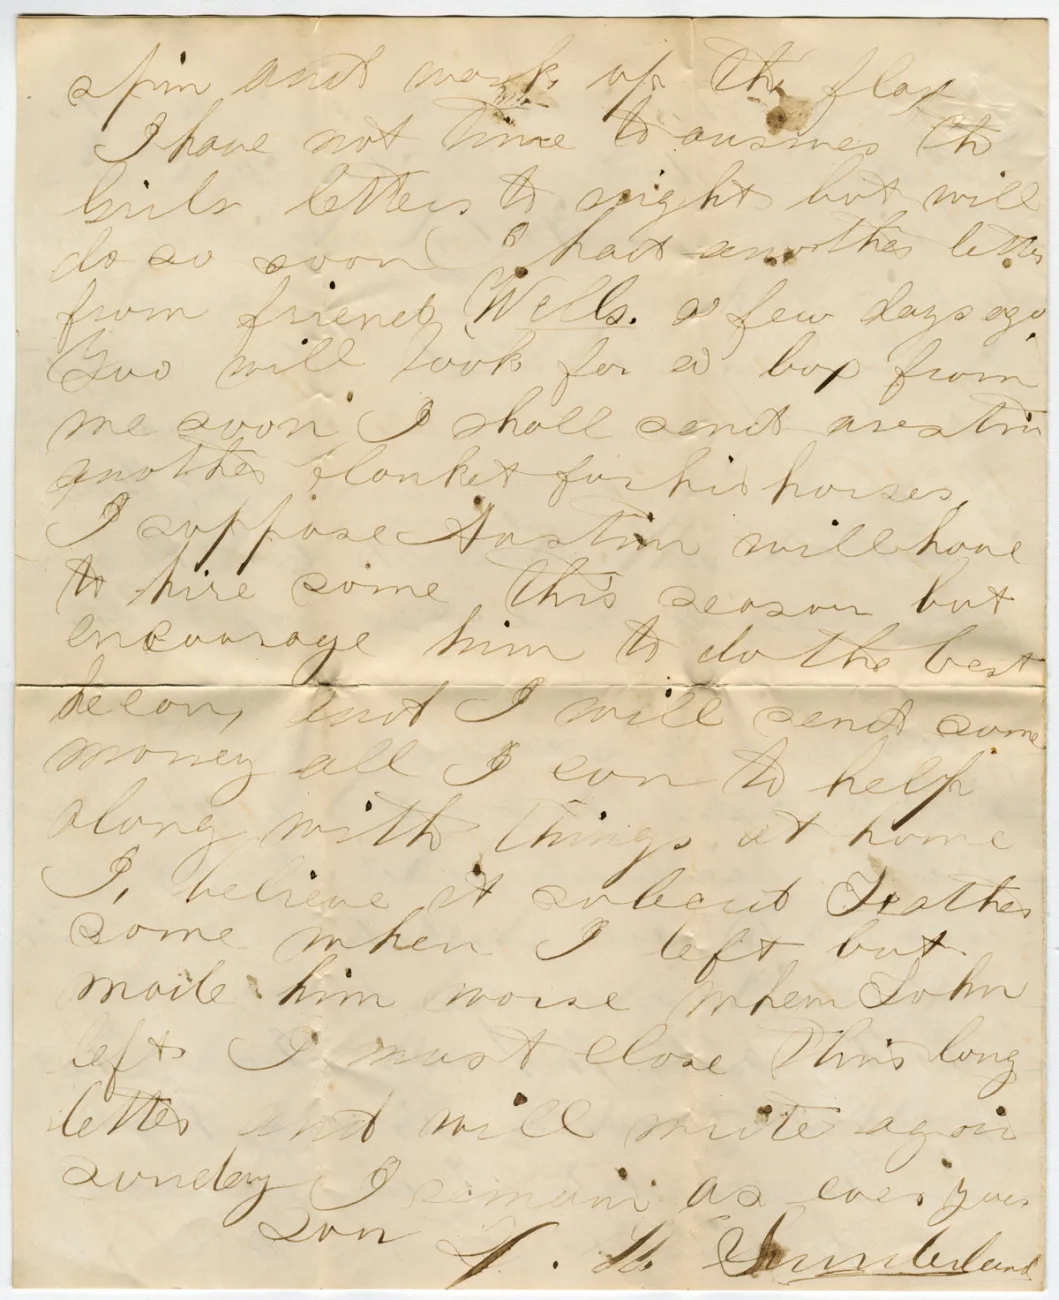 spin and work up the flax
I have not time to answer the
Girls letters to night but will
do so soon I had another letter
from friend Wells. a few days ago
You will look for a box from
me soon I shall send Austin
another blanket for his horses,
I suppose Austin will have
to hire some this season but
encourage him to do the best
he can, and I will send some
money all I can to help
along with things at home
I, believe it Father
some when I left but
made him worse when John
left I must close this long
letter and will write again
sunday I remain as ever your
son Sunderland